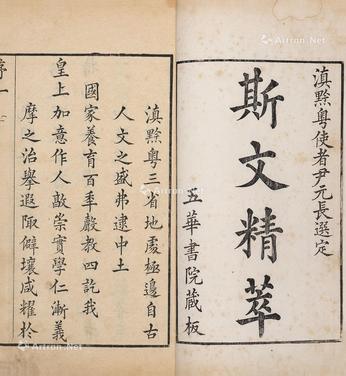 滇黔粵使者尹元長選定
斯文精萃
五華書院藏板
滇黔粵三省地處極邊自古
人文之盛弗逮中土
國家養育百年聲教四訖我
皇上加意作人敦崇實學仁漸義
摩之治舉遐陬僻壤咸耀於
序一
Artron.Net
Artron.Net
Artron.Net
Artron.Net